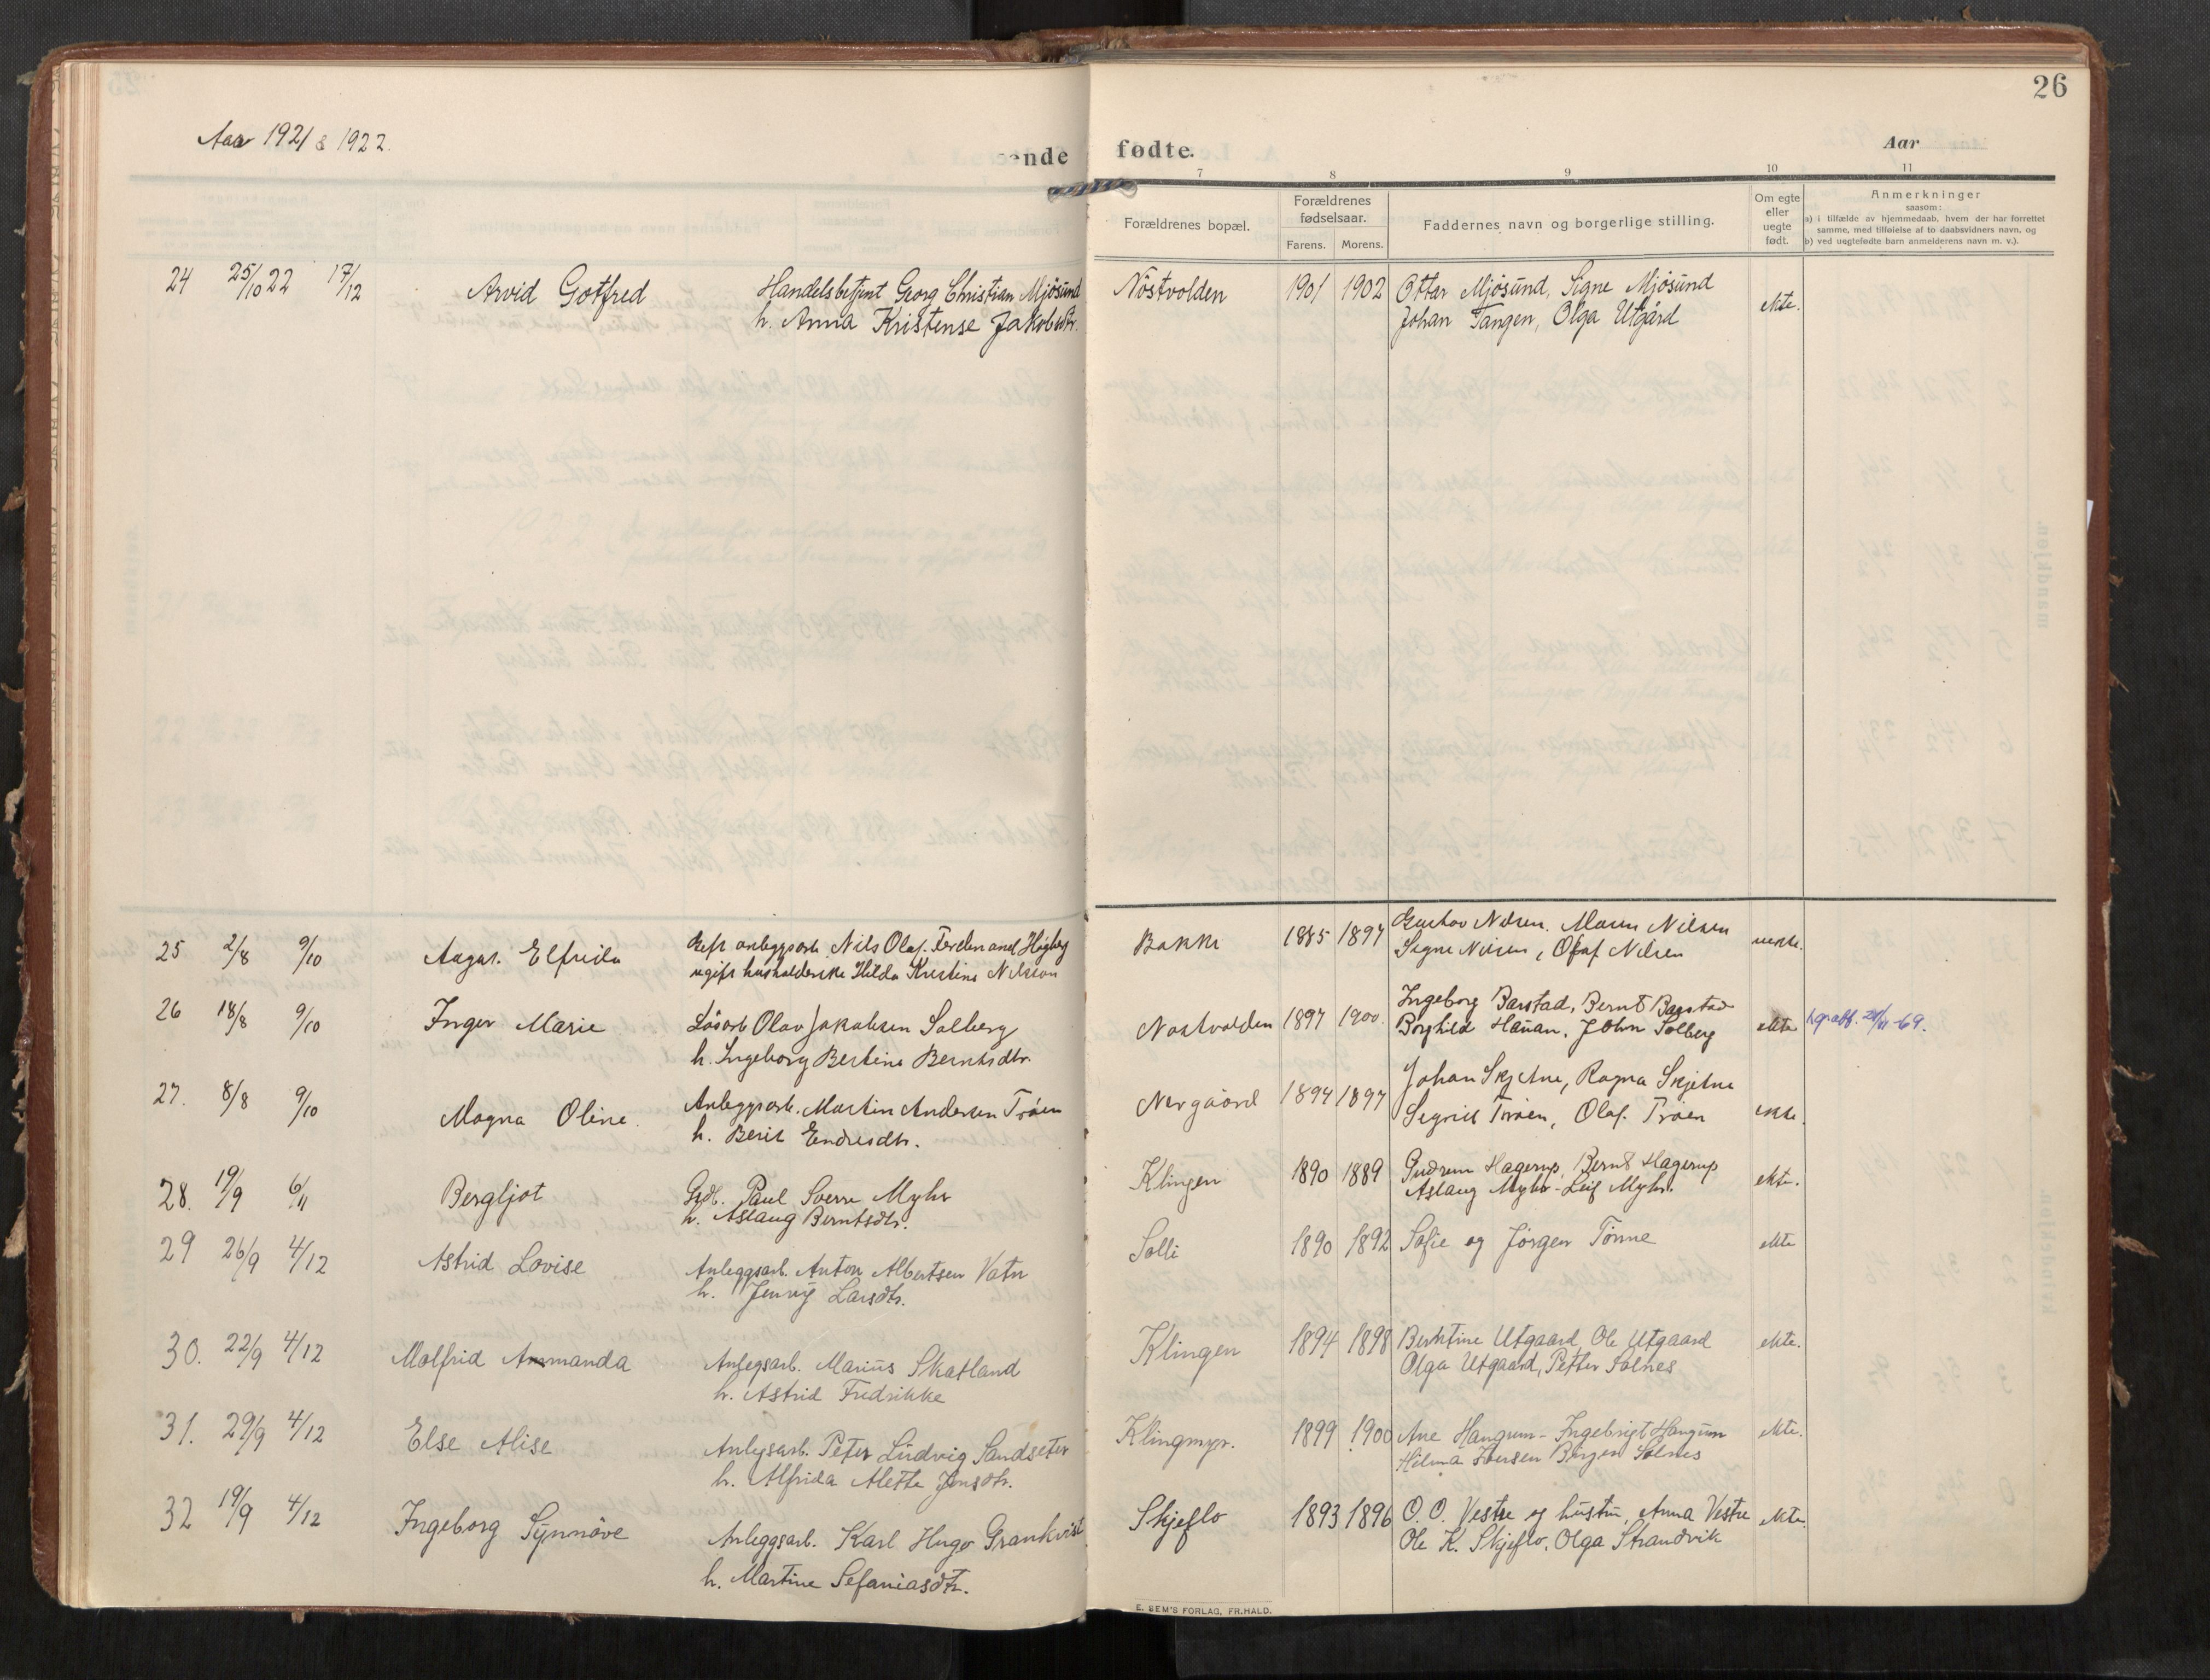 26
Aar 1921 & 1922.
ende
fødte.
Aar
7 8 9 10 11
Forældrenes bopæl.
Forældrenes fødselsaar.
Farens. Morens.
Faddernes navn og borgerlige stilling.
Om egte eller uegte født.
Anmerkninger
saasom:
a) i tilfælde av hjemmedaab, hvem der har forrettet
samme, med tilføielse af to daabsvidners navn, og
b) ved uegtefødte barn anmelderens navn m. v.).
24 25/10 22 17/12 Arvid Gotfred Handelsbetjent Georg Christian Mjösund Nöstvolden 1901 1902 Ottar Mjösund, Signe Mjösund ekte.
h. Anna Kristense Jakobsdtr. Johan Tangen, Olga Utgård
25 2/8 9/10 Aagot Elfrida Gift anleggsarb. Nils Olaf Ferdenand Högberg Bakke 1885 1897 Gustav Nilsen, Maren Nilsen uekte.
ugift husholderske Hilda Kristine Nilsson Signe Nilsen, Olaf Nilsen
26 18/8 9/10 Inger Marie Lösarb Olav Jakobsen Solberg Nostvolden 1897 1900 Ingeborg Barstad, Bernt Barstad
h. Ingeborg Bertine Berntsdtr. Borghild Hauan, John Solberg ekte
27. 8/8 9/10 Magna Oline. Anleggsarb. Martin Andersen Tröen Nergaard 1894 1897 Johan Skjetne, Ragna Skjetne
h. Berit Endresdtr. Sigrid Tröen, Olaf Tröen ekte.
28. 19/9 6/11 Bergljot Grdb. Paul Sverre Myhr Klingen 1890 1889 Gudrun Hagerup, Bernt Hagerup ekte.
h. Aslaug Berntsdtr. Aslaug Myhr - Leif Myhr.
29 26/9 4/12 Astrid Lovise Anleggsarb. Anton Albertsen Vatn Solli 1890 1892 Sofie og Jörgen Tönne ekte
h. Jenny Larsdtr.
30. 22/9 4/12 Malfrid Ammanda Anlegsarb. Marius Skatland Klingen 1894 1898 Berntine Utgaard, Ole Utgaard ekte.
h. Astrid Fredrikke Olga Utgaard, Petter Solnes
31. 29/9 4/12 Else Alise Anlegsarb. Peter Ludvig Sandseter Klingmyr. 1899 1900 Ane Haugum - Ingebrigt Haugum ekte.
h. Alfrida Alette Jensdtr. Hilma Iversen Birger Solnes
32 19/9 4/12 Ingeborg Synnöve Anleggsarb. Karl Hugo Grankvist Skjeflo 1893 1896 O. O. Vestre og hustru, Anna Vestre ekte.
h. Martine Sefaniasdtr. Ole K. Skjeflo, Olga Strandvik
E. SEM'S FORLAG, FR.HALD.